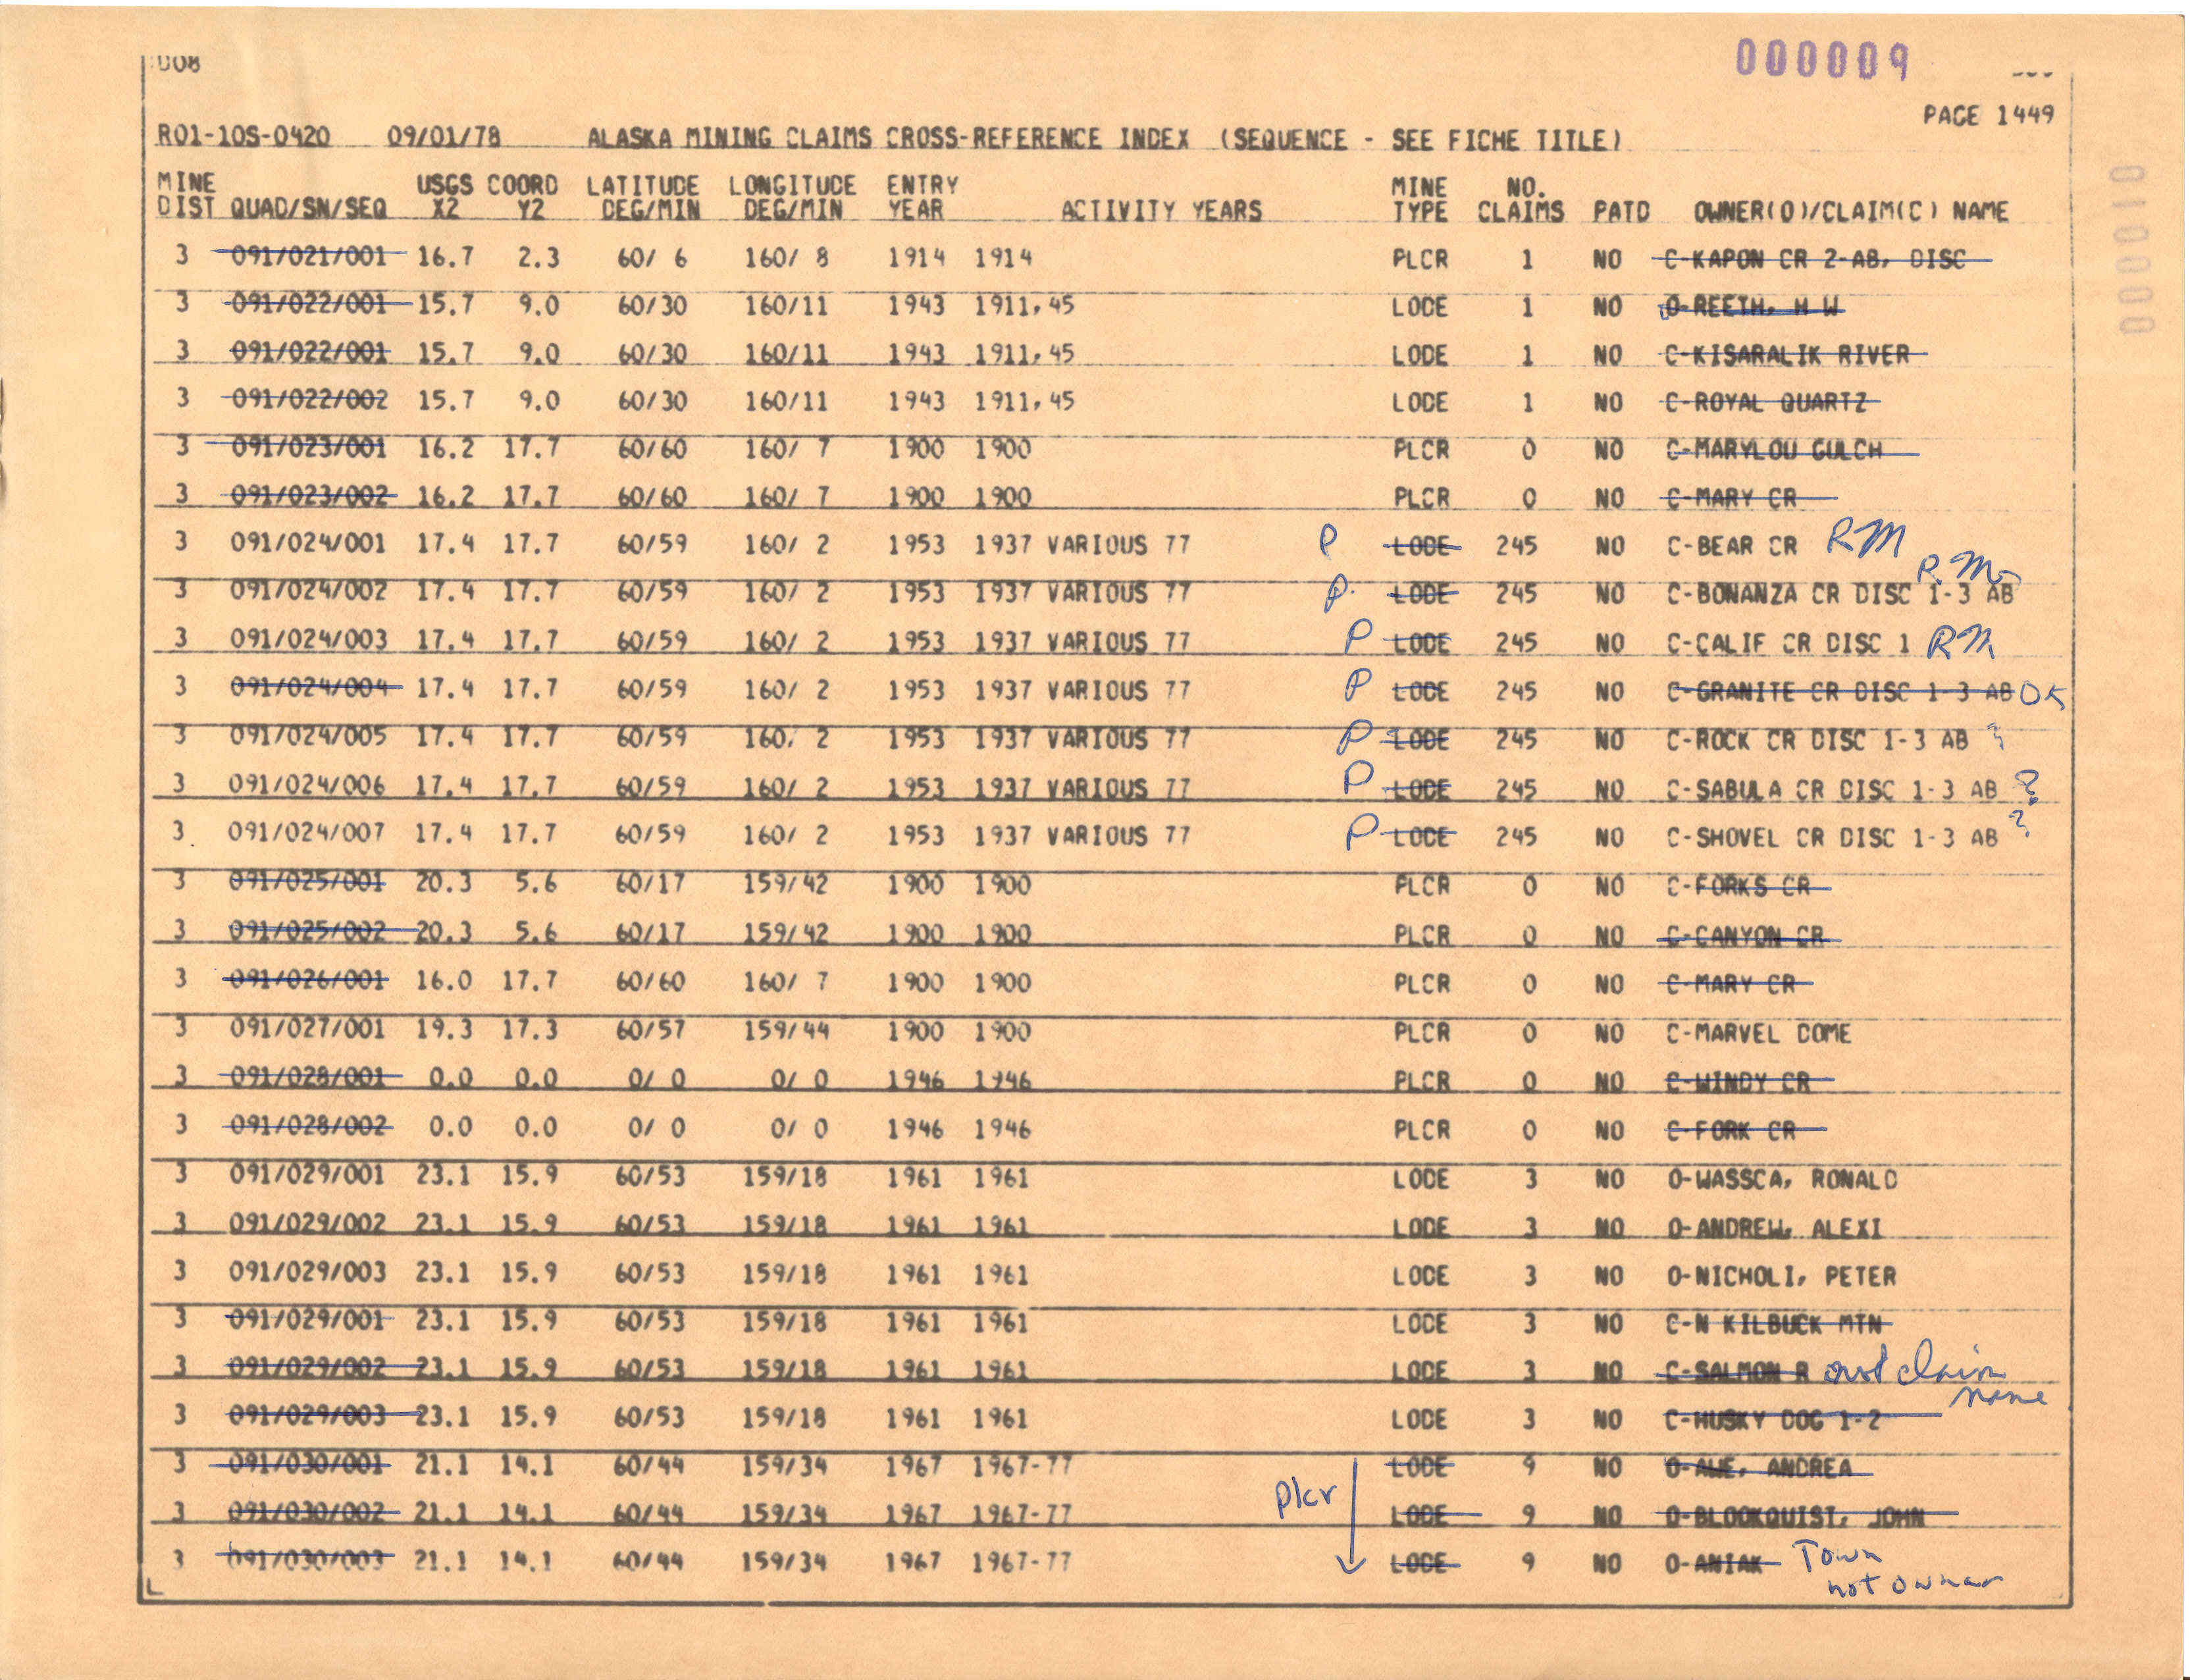 008
000009
PAGE 1449
010000
R01-10S-0420 09/01/78 ALASKA MINING CLAIMS CROSS-REFERENCE INDEX (SEQUENCE - SEE FICHE TITLE)
MINE USGS COORD LATITUDE LONGITUDE ENTRY MINE NO.
DIST QUAD/SN/SEQ X2 Y2 DEG/MIN DEG/MIN YEAR ACTIVITY YEARS TYPE CLAIMS PATD OWNER(O)/CLAIM(C) NAME
3 091/021/001 16.7 2.3 60/ 6 160/ 8 1914 1914 PLCR 1 NO C-KAPON CR 2-AB, DISC
3 091/022/001 15.7 9.0 60/30 160/11 1943 1911,45 LODE 1 NO O-REETH, H W
3 091/022/001 15.7 9.0 60/30 160/11 1943 1911,45 LODE 1 NO C-KISARALIK RIVER
3 091/022/002 15.7 9.0 60/30 160/11 1943 1911,45 LODE 1 NO C-ROYAL QUARTZ
3 091/023/001 16.2 17.7 60/60 160/ 7 1900 1900 PLCR 0 NO C-MARYLOU GULCH
3 091/023/002 16.2 17.7 60/60 160/ 7 1900 1900 PLCR 0 NO C-MARY CR
3 091/024/001 17.4 17.7 60/59 160/ 2 1953 1937 VARIOUS 77 P LODE 245 NO C-BEAR CR RM
3 091/024/002 17.4 17.7 60/59 160/ 2 1953 1937 VARIOUS 77 P. LODE 245 NO C-BONANZA CR DISC 1-3 AB R.M.
3 091/024/003 17.4 17.7 60/59 160/ 2 1953 1937 VARIOUS 77 P LODE 245 NO C-CALIF CR DISC 1 RM
3 091/024/004 17.4 17.7 60/59 160/ 2 1953 1937 VARIOUS 77 P LODE 245 NO C-GRANITE CR DISC 1-3 AB OK
3 091/024/005 17.4 17.7 60/59 160/ 2 1953 1937 VARIOUS 77 P LODE 245 NO C-ROCK CR DISC 1-3 AB ?
3 091/024/006 17.4 17.7 60/59 160/ 2 1953 1937 VARIOUS 77 P LODE 245 NO C-SABULA CR DISC 1-3 AB ?
3 091/024/007 17.4 17.7 60/59 160/ 2 1953 1937 VARIOUS 77 P LODE 245 NO C-SHOVEL CR DISC 1-3 AB ?
3 091/025/001 20.3 5.6 60/17 159/42 1900 1900 PLCR 0 NO C-FORKS CR
3 091/025/002 20.3 5.6 60/17 159/42 1900 1900 PLCR 0 NO C-CANYON CR
3 091/026/001 16.0 17.7 60/60 160/ 7 1900 1900 PLCR 0 NO C-MARY CR
3 091/027/001 19.3 17.3 60/57 159/44 1900 1900 PLCR 0 NO C-MARVEL DOME
3 091/028/001 0.0 0.0 0/ 0 0/ 0 1946 1946 PLCR 0 NO C-WINDY CR
3 091/028/002 0.0 0.0 0/ 0 0/ 0 1946 1946 PLCR 0 NO C-FORK CR
3 091/029/001 23.1 15.9 60/53 159/18 1961 1961 LODE 3 NO O-WASSCA, RONALD
3 091/029/002 23.1 15.9 60/53 159/18 1961 1961 LODE 3 NO O-ANDREW, ALEXI
3 091/029/003 23.1 15.9 60/53 159/18 1961 1961 LODE 3 NO O-NICHOLI, PETER
3 091/029/001 23.1 15.9 60/53 159/18 1961 1961 LODE 3 NO C-N KILBUCK MTN
3 091/029/002 23.1 15.9 60/53 159/18 1961 1961 LODE 3 NO C-SALMON R not claim
name
3 091/029/003 23.1 15.9 60/53 159/18 1961 1961 LODE 3 NO C-HUSKY DOG 1-2
3 091/030/001 21.1 14.1 60/44 159/34 1967 1967-77 LODE 9 NO O-AUE, ANDREA
plcr
3 091/030/002 21.1 14.1 60/44 159/34 1967 1967-77 LODE 9 NO O-BLOOKQUIST, JOHN
3 091/030/003 21.1 14.1 60/44 159/34 1967 1967-77 LODE 9 NO O-ANIAK Town
not owner